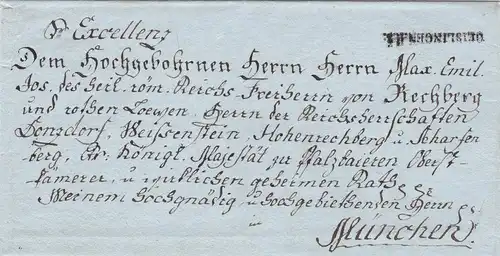 Sr Excellenz
GEISLINGEN.R.4.
Dem Hochgebohrnen Herrn Herrn Max. Emil.
Jos. des heil. röm. Reichs Freiherrn von Rechberg
und rothen Loewen, Herrn der Reichsherrschaften
Donsdorf, Weissenstein, Hohenrechberg u. Scharfen
berg, Königl. Majestät zu Pfalzbaiern Oberst-
kämerer, u. würklichen geheimen Rath
Meinem hochgnädig u. hochgebietenden Herrn
in
München.